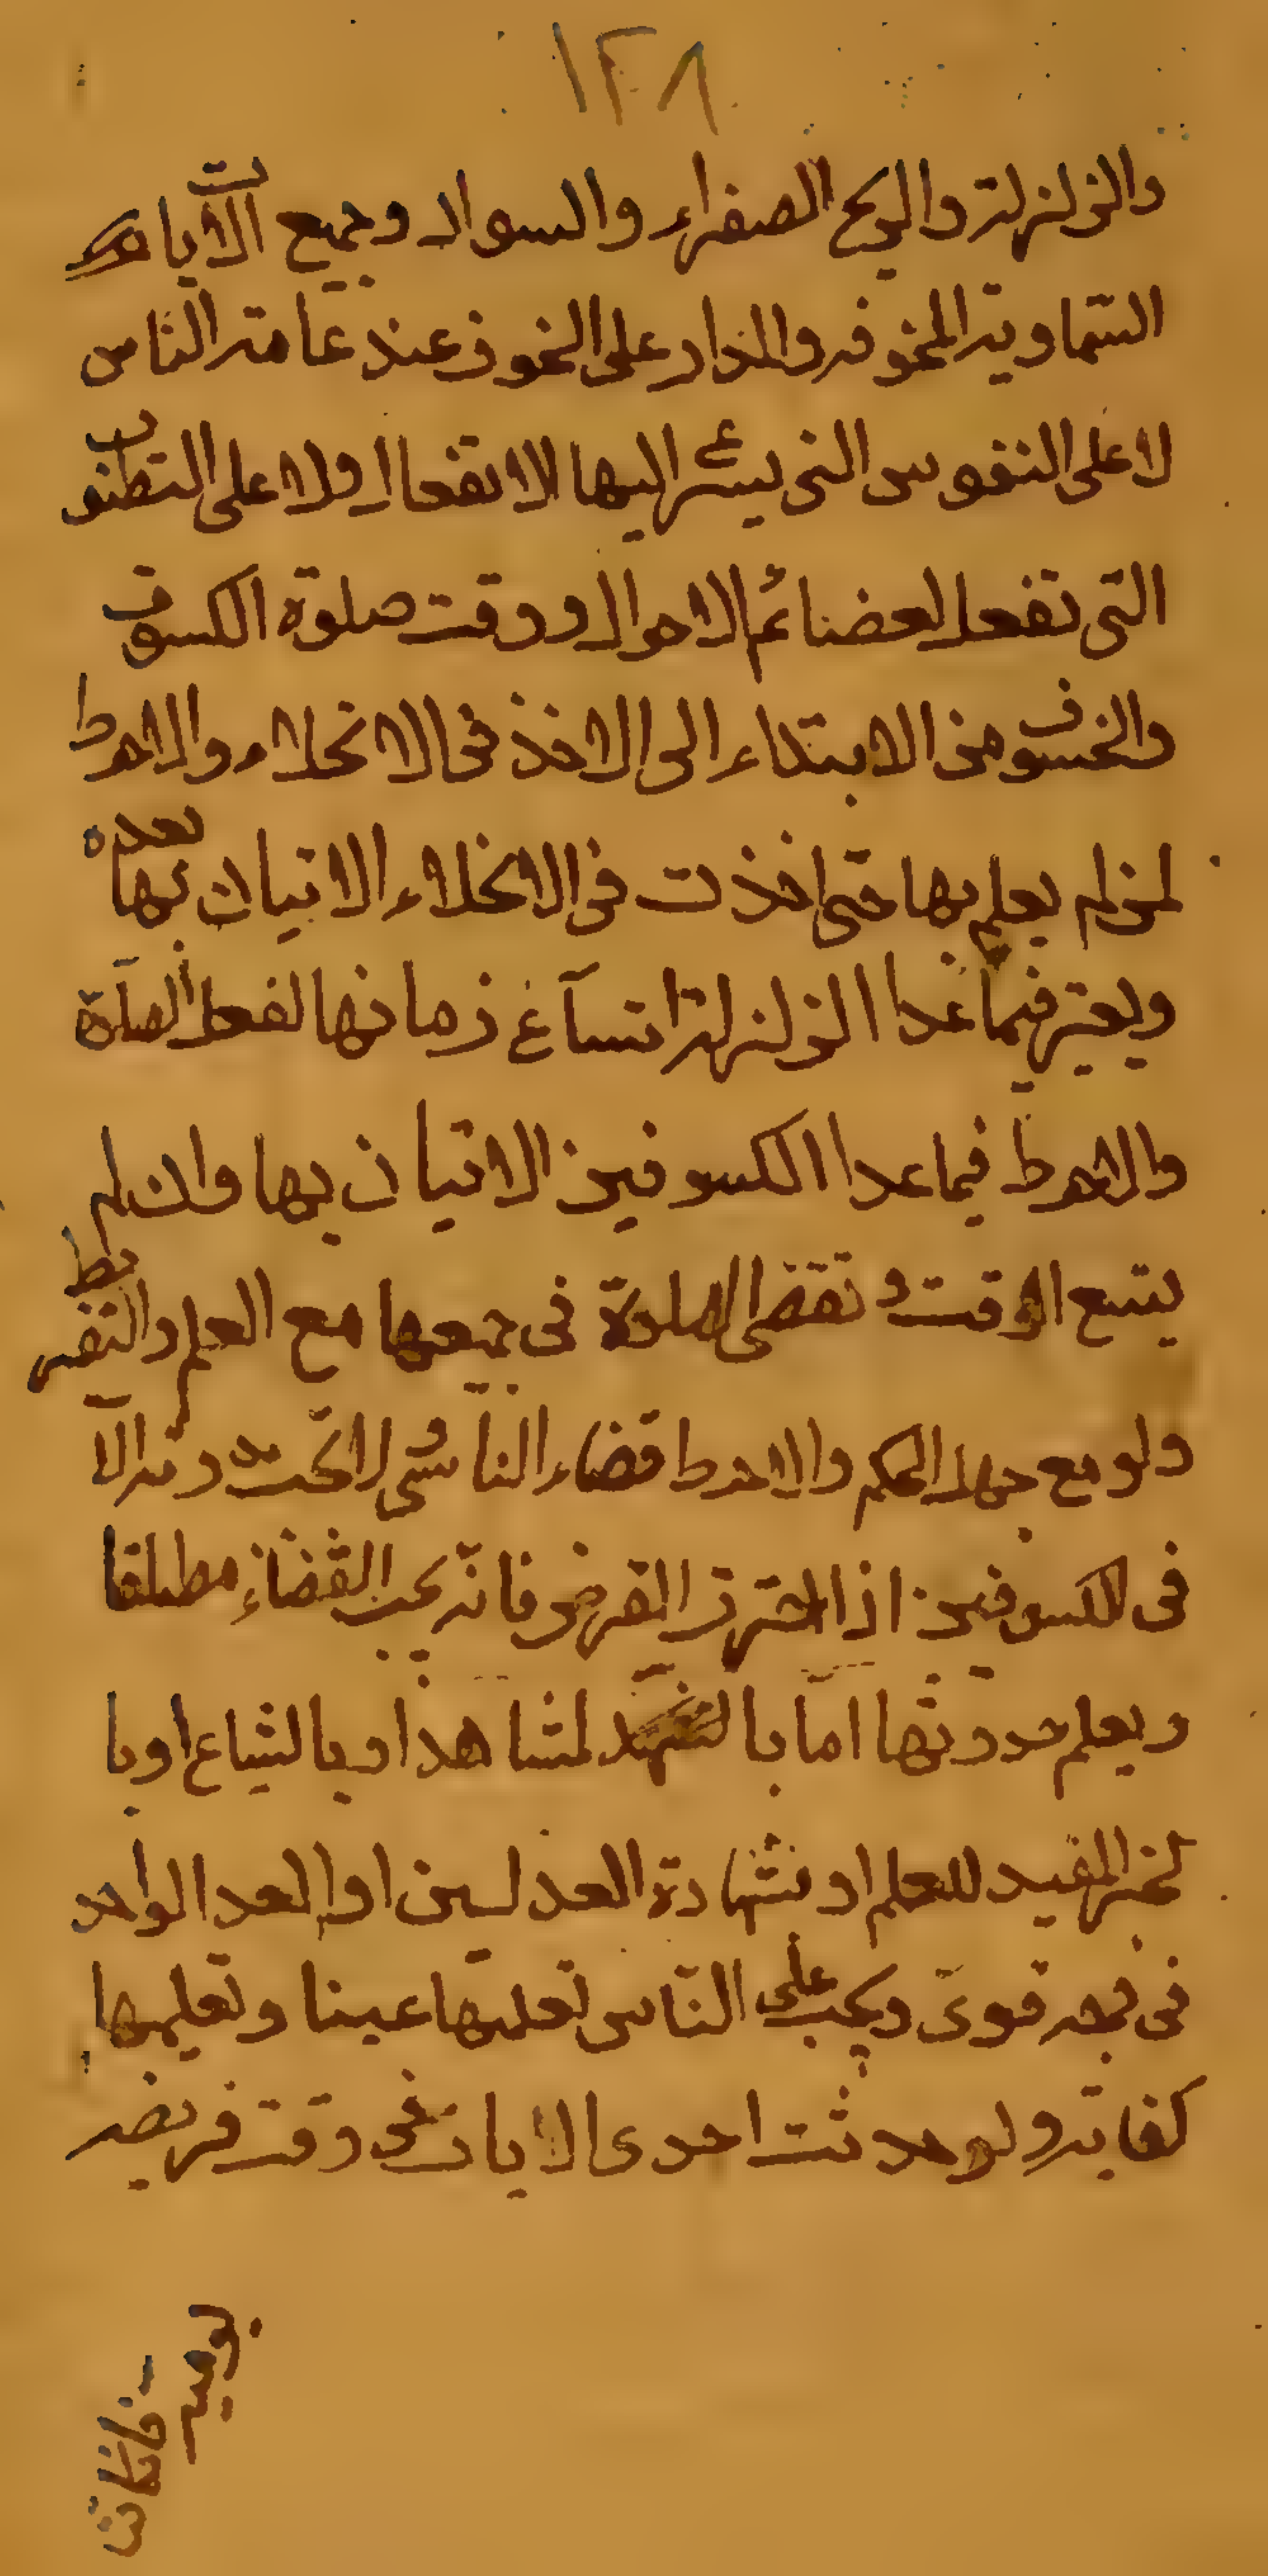 ١٢٨
والزلزلة والريح الصفراء والسواد وجميع الآيات
السّماوية المخوفة والمدار على الخوف عند عامة الناس
لا على النفوس التي يسرع اليها الانفعال ولا على
التي تفعل لعضائم الاحوال ووقت صلوة الكسوف
والخسوف من الابتداء الى الاخذ في الانجلاء والاحوط
لمن لم يعلم بها حتى اخذت في الانجلاء الاتيان بها بعده
ويعتبر فيما عدا الزلزلة اتساع زمانها لفعل الصلوة
والاحوط فيما عدا الكسوفين الاتيان بها وان لم
يتسع الوقت وتقضى الصلوة في جميعها مع العلم والتفريط
ولو مع جهل الحكم والاحوط قضاء الناسي لا تحت الا
في الكسوفين اذا احترق القرص فانه يجب القضاء مطلقا
ويعلم حدوثها امّا با لمشاهدا وبالشياع اوبا
لخبر المفيد للعلم او بشهادة العدلين او العدل الواحد
في وجه قوىّ ويجب على النّاس تعلمها عينا وتعليمها
كفاية ولو حدثت احدى الايات في وقت فريضه
يوميه فانكانت